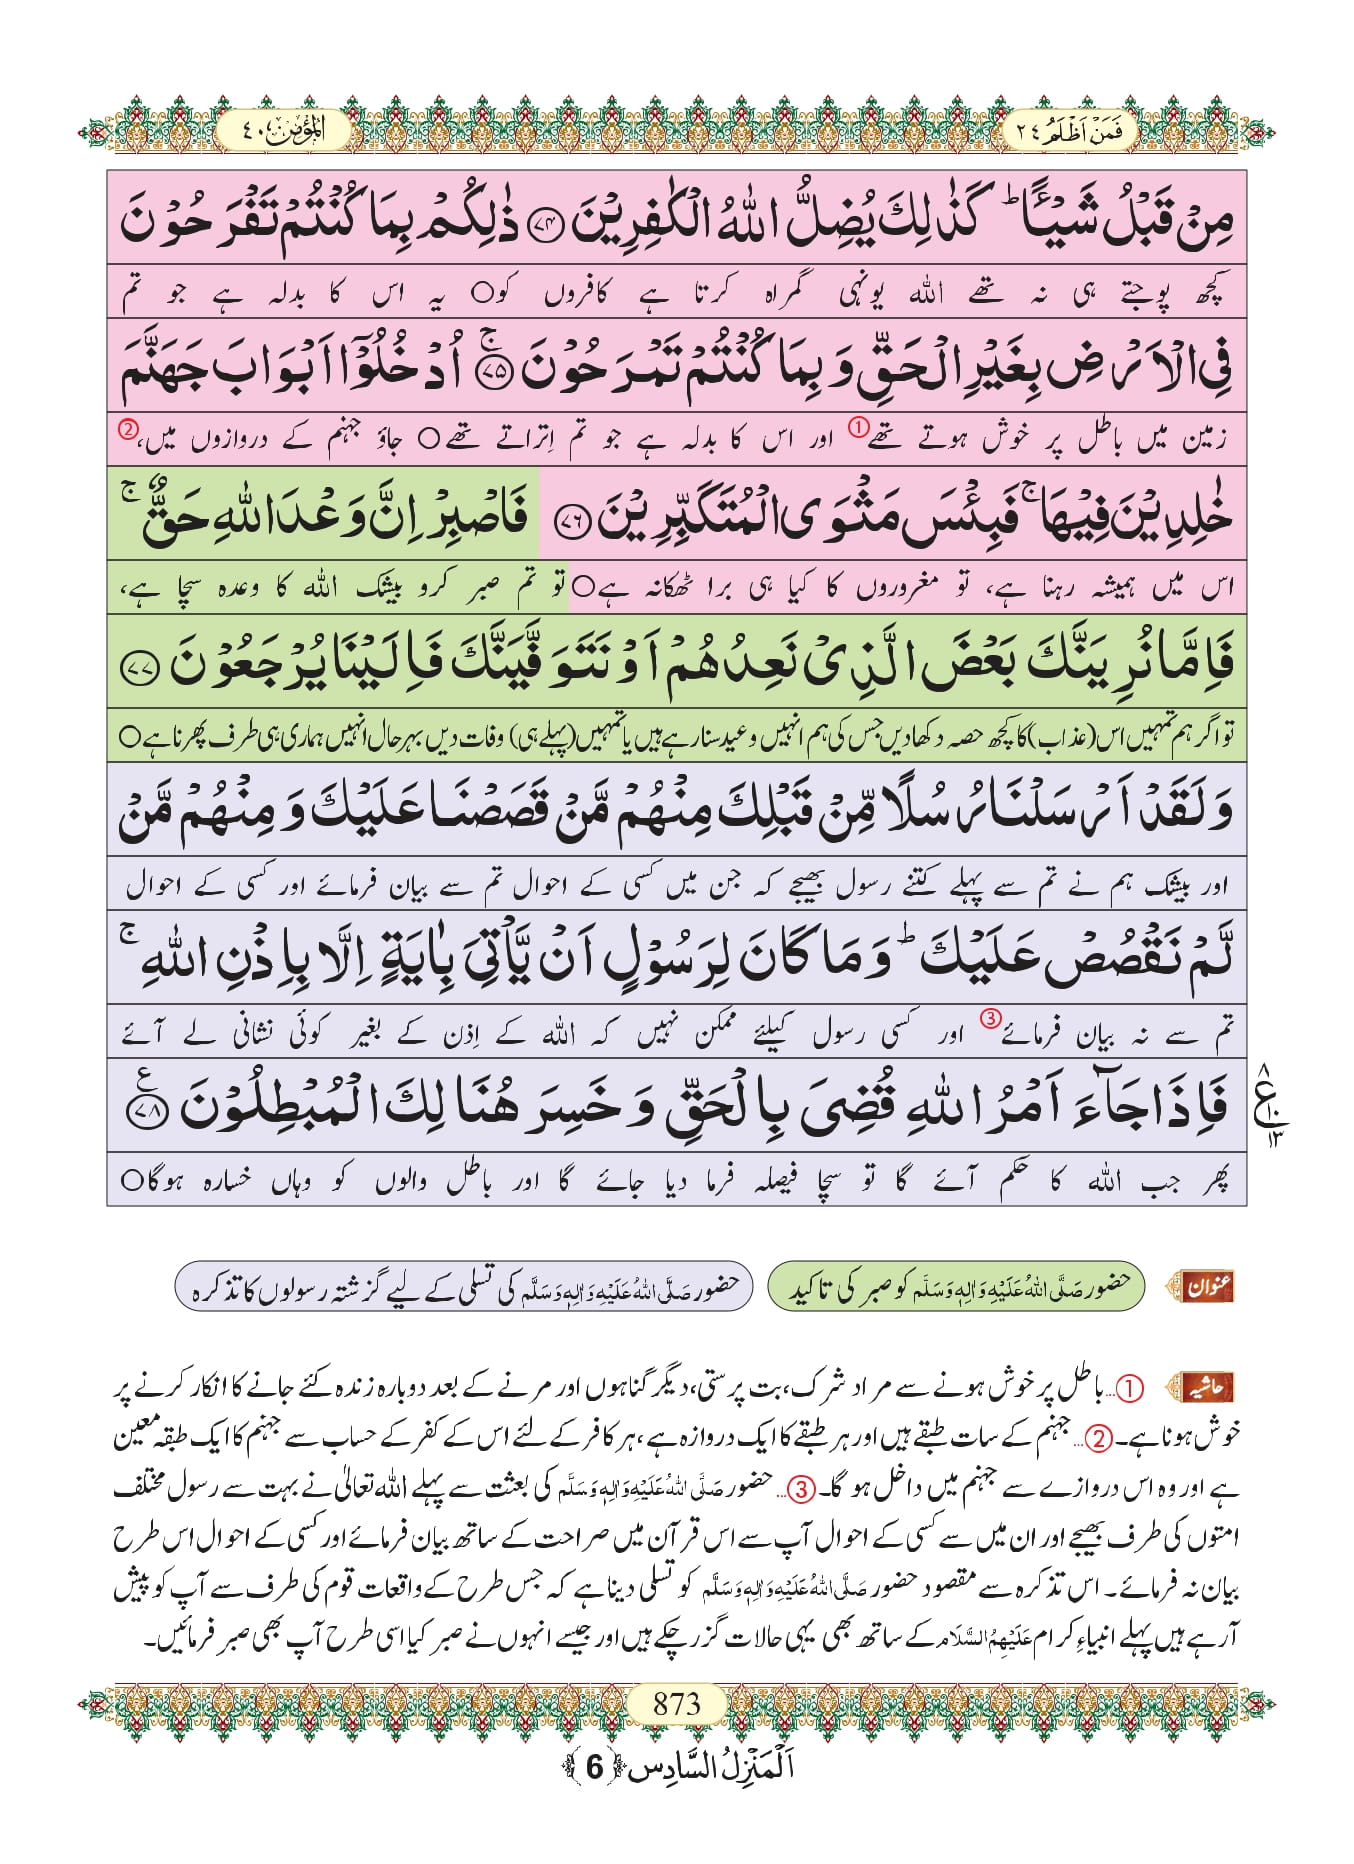 فَمَنْ اَظْلَمُ ٢٤
المؤمن ٤٠
مِنْ قَبْلُ شَیْــٴًـاؕ كَذٰلِكَ یُضِلُّ اللّٰهُ الْكٰفِرِیْنَ ﴿۷۴﴾ ذٰلِكُمْ بِمَا كُنْتُمْ تَفْرَحُوْنَ
کچھ پوجتے ہی نہ تھے اللہ یونہی گمراہ کرتا ہے کافروں کو○ یہ اس کا بدلہ ہے جو تم
فِی الْاَرْضِ بِغَیْرِ الْحَقِّ وَ بِمَا كُنْتُمْ تَمْرَحُوْنَ ﴿۷۵﴾ۚ اُدْخُلُوْۤا اَبْوَابَ جَهَنَّمَ
زمین میں باطل پر خوش ہوتے تھے① اور اس کا بدلہ ہے جو تم اِتراتے تھے○ جاؤ جہنم کے دروازوں میں،②
خٰلِدِیْنَ فِیْهَاۚ فَبِئْسَ مَثْوَى الْمُتَكَبِّرِیْنَ ﴿۷۶﴾ فَاصْبِرْ اِنَّ وَعْدَ اللّٰهِ حَقٌّۚ
اس میں ہمیشہ رہنا ہے، تو مغروروں کا کیا ہی برا ٹھکانہ ہے○ تو تم صبر کرو بیشک اللہ کا وعدہ سچا ہے،
فَاِمَّا نُرِیَنَّكَ بَعْضَ الَّذِیْ نَعِدُهُمْ اَوْ نَتَوَفَّیَنَّكَ فَاِلَیْنَا یُرْجَعُوْنَ ﴿۷۷﴾
تو اگر ہم تمہیں اس (عذاب) کا کچھ حصہ دکھادیں جس کی ہم انہیں وعید سنا رہے ہیں یا تمہیں (پہلے ہی) وفات دیں بہر حال انہیں ہماری ہی طرف پھرنا ہے○
وَ لَقَدْ اَرْسَلْنَا رُسُلًا مِّنْ قَبْلِكَ مِنْهُمْ مَّنْ قَصَصْنَا عَلَیْكَ وَ مِنْهُمْ مَّنْ
اور بیشک ہم نے تم سے پہلے کتنے رسول بھیجے کہ جن میں کسی کے احوال تم سے بیان فرمائے اور کسی کے احوال
لَّمْ نَقْصُصْ عَلَیْكَؕ وَ مَا كَانَ لِرَسُوْلٍ اَنْ یَّاْتِیَ بِاٰیَةٍ اِلَّا بِاِذْنِ اللّٰهِۚ
تم سے نہ بیان فرمائے③ اور کسی رسول کیلئے ممکن نہیں کہ اللہ کے اِذن کے بغیر کوئی نشانی لے آئے
فَاِذَا جَآءَ اَمْرُ اللّٰهِ قُضِیَ بِالْحَقِّ وَ خَسِرَ هُنَالِكَ الْمُبْطِلُوْنَ ﴿۷۸﴾ع
٨ ع ١٠ ١٣
پھر جب اللہ کا حکم آئے گا تو سچا فیصلہ فرما دیا جائے گا اور باطل والوں کو وہاں خسارہ ہوگا○
عنوان حضور صَلَّی اللہُ عَلَیْہِ وَاٰلِہٖ وَسَلَّم کو صبر کی تاکید حضور صَلَّی اللہُ عَلَیْہِ وَاٰلِہٖ وَسَلَّم کی تسلی کے لیے گزشتہ رسولوں کا تذکرہ
حاشیہ ①…باطل پر خوش ہونے سے مراد شرک، بت پرستی، دیگر گناہوں اور مرنے کے بعد دوبارہ زندہ کئے جانے کا انکار کرنے پر
خوش ہونا ہے۔ ②…جہنم کے سات طبقے ہیں اور ہر طبقے کا ایک دروازہ ہے، ہر کافر کے لئے اس کے کفر کے حساب سے جہنم کا ایک طبقہ معین
ہے اور وہ اس دروازے سے جہنم میں داخل ہو گا۔ ③…حضور صَلَّی اللہُ عَلَیْہِ وَاٰلِہٖ وَسَلَّم کی بعثت سے پہلے اللہ تعالیٰ نے بہت سے رسول مختلف
امتوں کی طرف بھیجے اور ان میں سے کسی کے احوال آپ سے اس قرآن میں صراحت کے ساتھ بیان فرمائے اور کسی کے احوال اس طرح
بیان نہ فرمائے۔ اس تذکرہ سے مقصود حضور صَلَّی اللہُ عَلَیْہِ وَاٰلِہٖ وَسَلَّم کو تسلی دینا ہے کہ جس طرح کے واقعات قوم کی طرف سے آپ کو پیش
آرہے ہیں پہلے انبیاءِ کرام عَلَیْہِمُ السَّلَام کے ساتھ بھی یہی حالات گزر چکے ہیں اور جیسے انہوں نے صبر کیا اسی طرح آپ بھی صبر فرمائیں۔
873
اَلْمَنْزِلُ السَّادِس ﴿6﴾